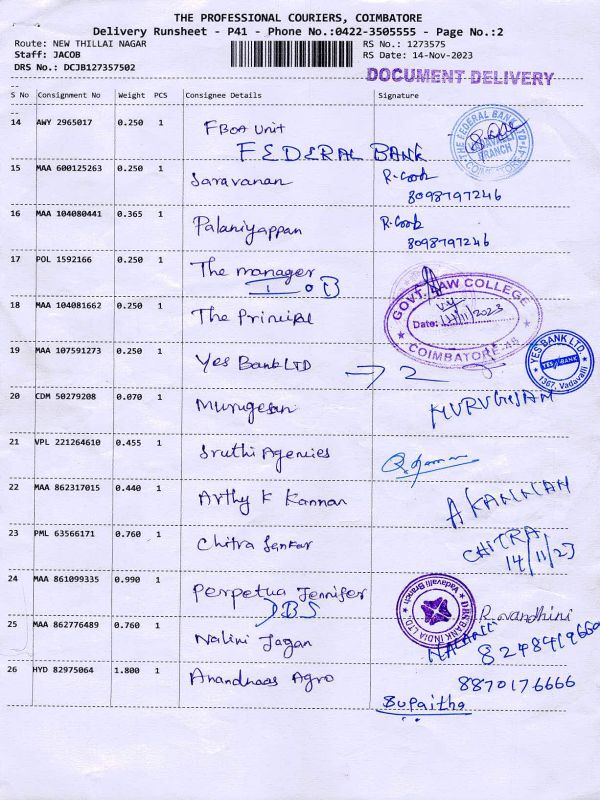 THE PROFESSIONAL COURIERS, COIMBATORE
Delivery Runsheet - P41 - Phone No.:0422-3505555 - Page No.:2
Route: NEW THILLAI NAGAR
RS No.: 1273575
Staff: JACOB
RS Date: 14-Nov-2023
DRS No.: DCJB127357502
DOCUMENT DELIVERY
S No Consignment No Weight PCS Consignee Details Signature
14 AWY 2965017 0.250 1 FBOA Unit
FEDERAL BANK
THE FEDERAL BANK LTD BRANCH COIMBATORE-41
15 MAA 600125263 0.250 1 Saravanan
8098797246
16 MAA 104080441 0.365 1 Palaniyappan
8098797246
17 POL 1592166 0.250 1 The manager
I.O.B
18 MAA 104081662 0.250 1 The Prinipal
GOVT. LAW COLLEGE
Date: 14/11/2023
COIMBATORE-46
19 MAA 107591273 0.250 1 Yes Bank LTD → 2
YES BANK LTD. YES BANK 1367, Vadavalli
20 CDM 50279208 0.070 1 Murugesan MURUGESAN
21 VPL 221264610 0.455 1 Sruthi Agencies
22 MAA 862317015 0.440 1 Arthy K Kannan A KANNAN
23 PML 63566171 0.760 1 Chitra Sankar CHITRA
14/11/23
24 MAA 861099335 0.990 1 Perpetua Jennifer
DBS
DBS BANK INDIA LTD. Vadavalli Branch
25 MAA 862776489 0.760 1 Nalini Jagan
26 HYD 82975064 1.800 1 Anandhaas Agro 8870176666